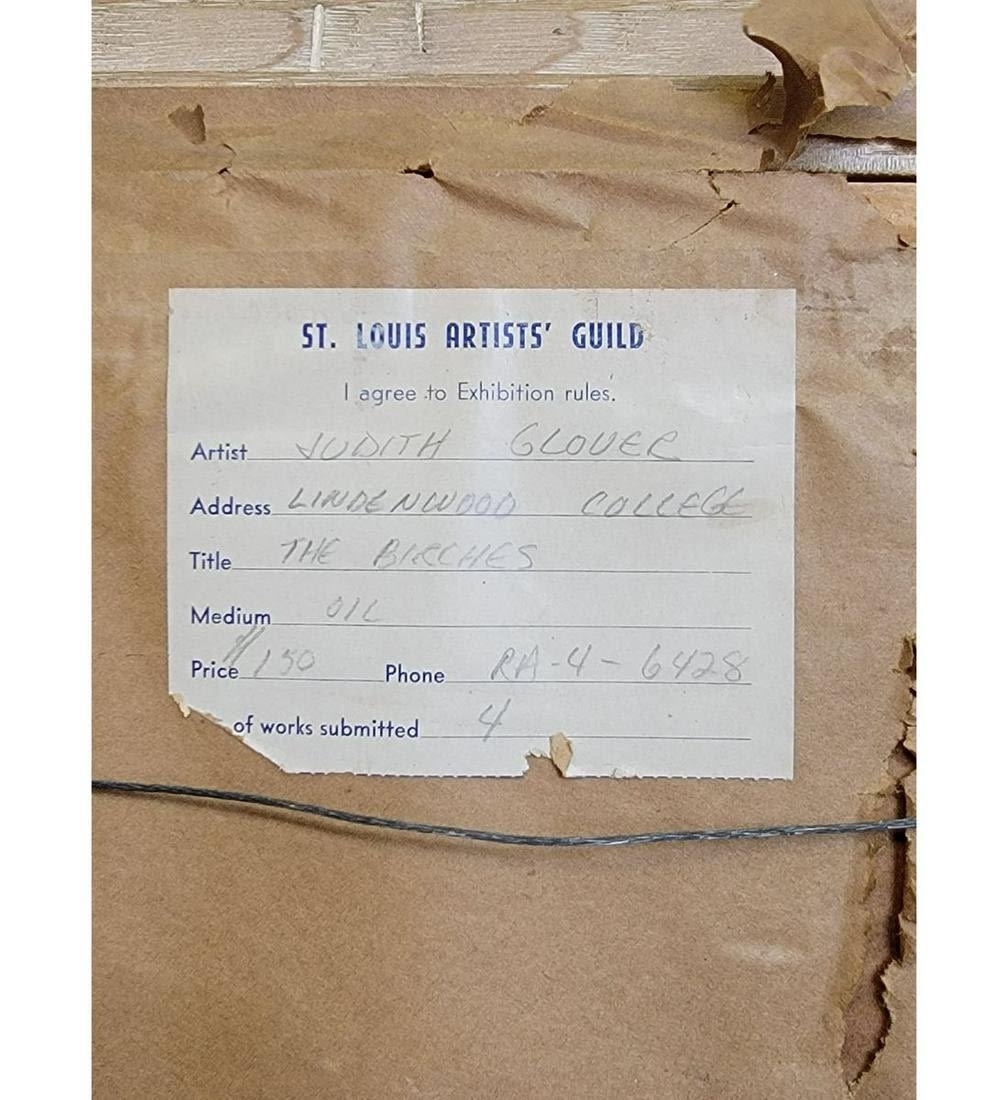 ST. LOUIS ARTISTS' GUILD
I agree to Exhibition rules.
Artist JUDITH GLOVER
Address LINDENWOOD COLLEGE
Title THE BIRCHES
Medium OIL
Price $150 Phone RA-4-6428
of works submitted 4